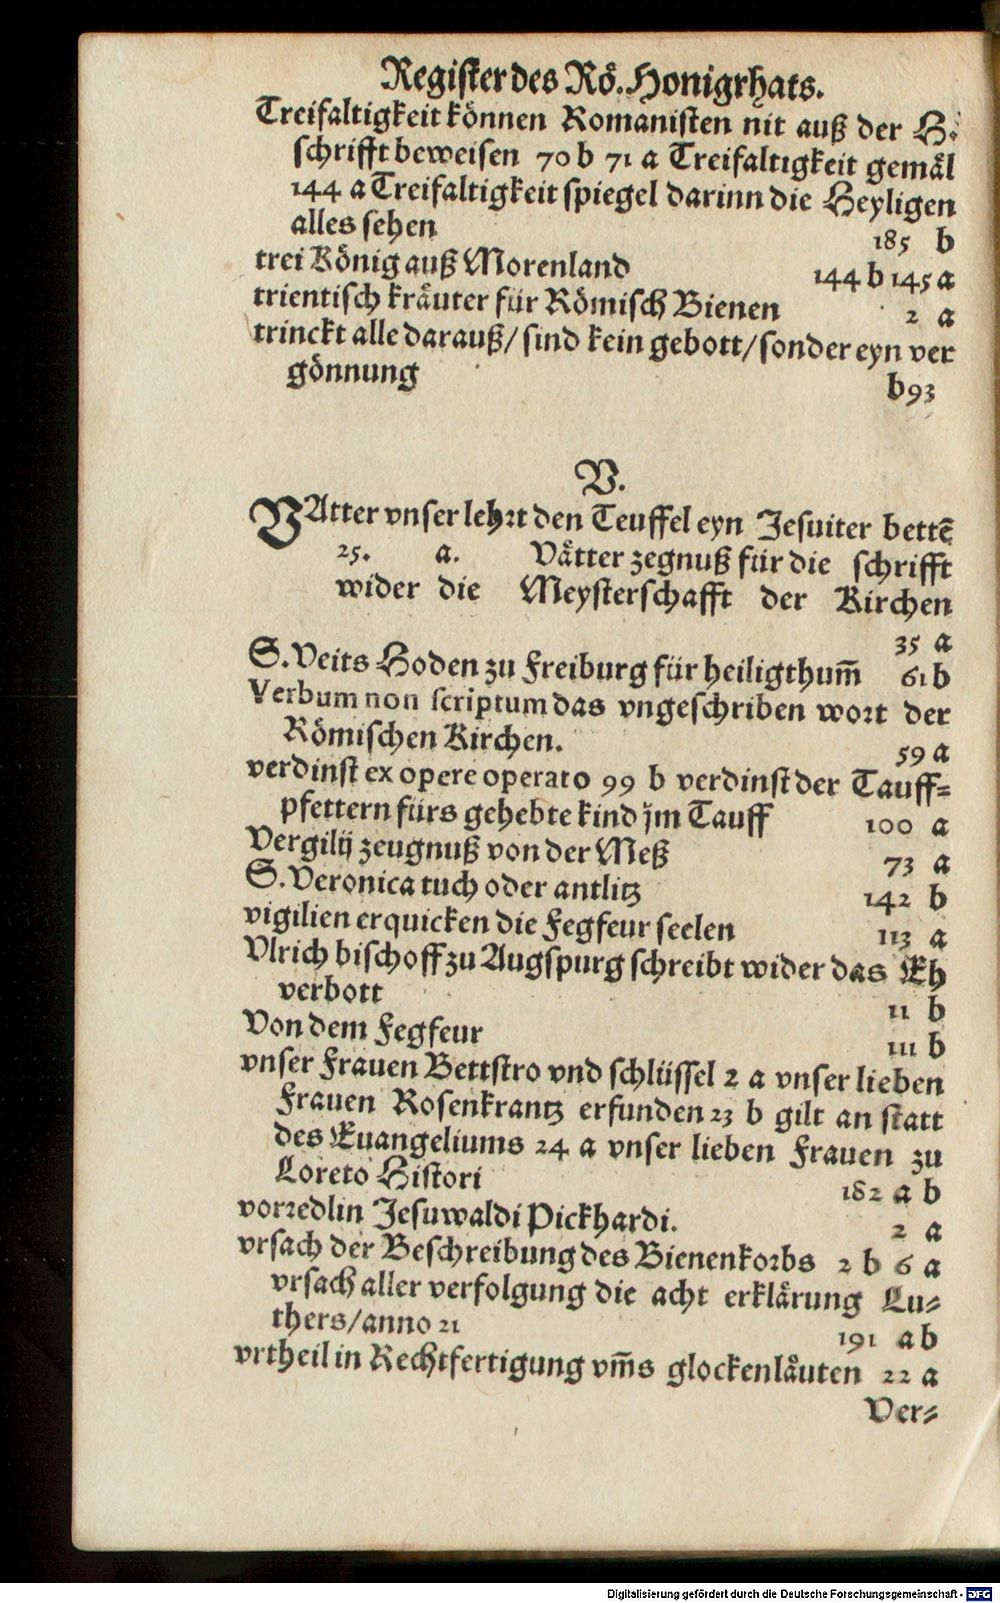 Register des Rö. Honigrhats.
Treifaltigkeit können Romanisten nit auß der H.
schrifft beweisen 70 b 71 a Treifaltigkeit gemäl
144 a Treifaltigkeit spiegel darinn die Heyligen
alles sehen 185 b
trei König auß Morenland 144 b 145 a
trientisch kräuter für Römisch Bienen 2 a
trinckt alle darauß/ sind kein gebott/ sonder eyn ver
gönnung b93
V.
VAtter vnser lehrt den Teuffel eyn Jesuiter bettē
25. a. Vätter zegnuß für die schrifft
wider die Meysterschafft der Kirchen
35 a
S. Veits Hoden zu Freiburg für heiligthum̄ 61 b
Verbum non scriptum das vngeschriben wort der
Römischen Kirchen. 59 a
verdinst ex opere operato 99 b verdinst der Tauff⸗
pfettern fürs gehebte kind jm Tauff 100 a
Vergilij zeugnuß von der Meß 73 a
S. Veronica tuch oder antlitz 142 b
vigilien erquicken die Fegfeur seelen 113 a
Vlrich bischoff zu Augspurg schreibt wider das Eh
verbott 11 b
Von dem Fegfeur 111 b
vnser Frauen Bettstro vnd schlüssel 2 a vnser lieben
Frauen Rosenkrantz erfunden 23 b gilt an statt
des Euangeliums 24 a vnser lieben Frauen zu
Loreto Histori 182 a b
vorredlin Jesuwaldi Pickhardi. 2 a
vrsach der Beschreibung des Bienenkorbs 2 b 6 a
vrsach aller verfolgung die acht erklärung Lu⸗
thers/ anno 21 191 a b
vrtheil in Rechtfertigung vm̄s glockenläuten 22 a
Ver⸗
Digitalisierung gefördert durch die Deutsche Forschungsgemeinschaft - DFG